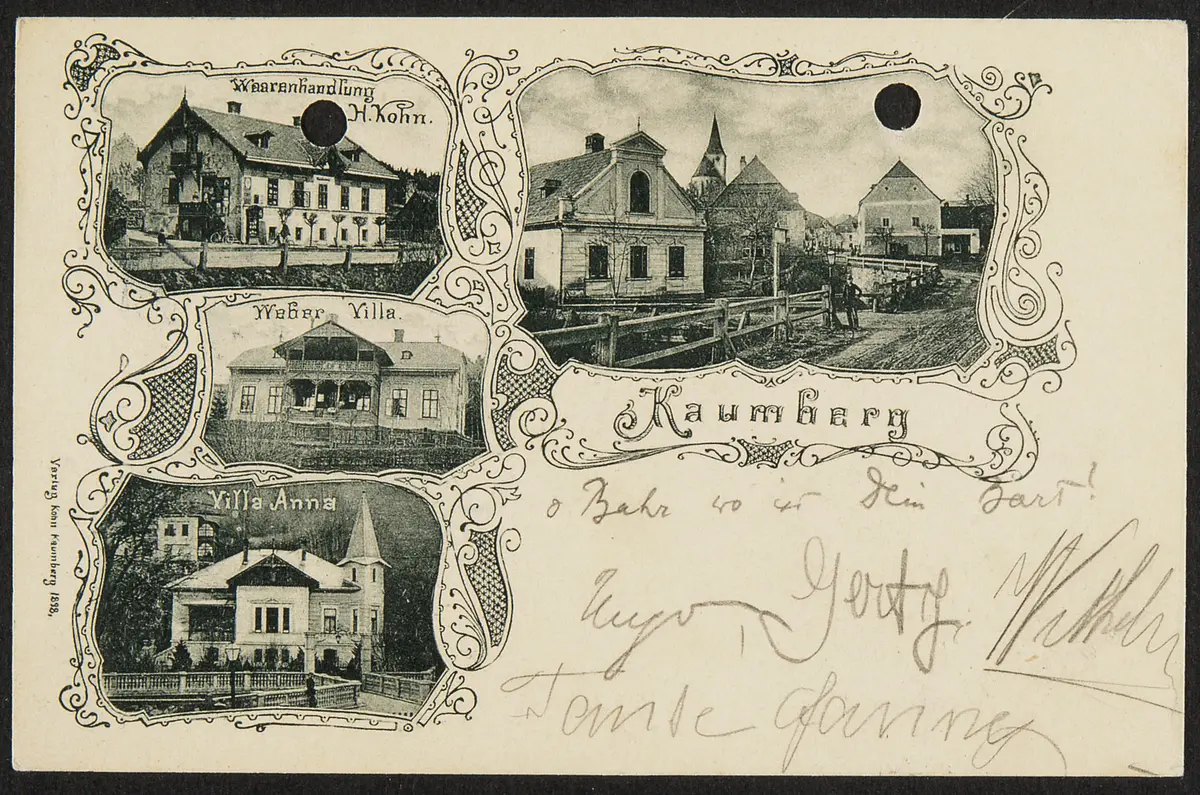 Waarenhandlung
H. Kohn.
Weber Villa.
Villa Anna
Kaumberg
Verlag Kohn Kaumberg 1898,
o Bahr wo ist Dein Bart!
Hugo, Gerty, Wilhelm
Tante Fanny